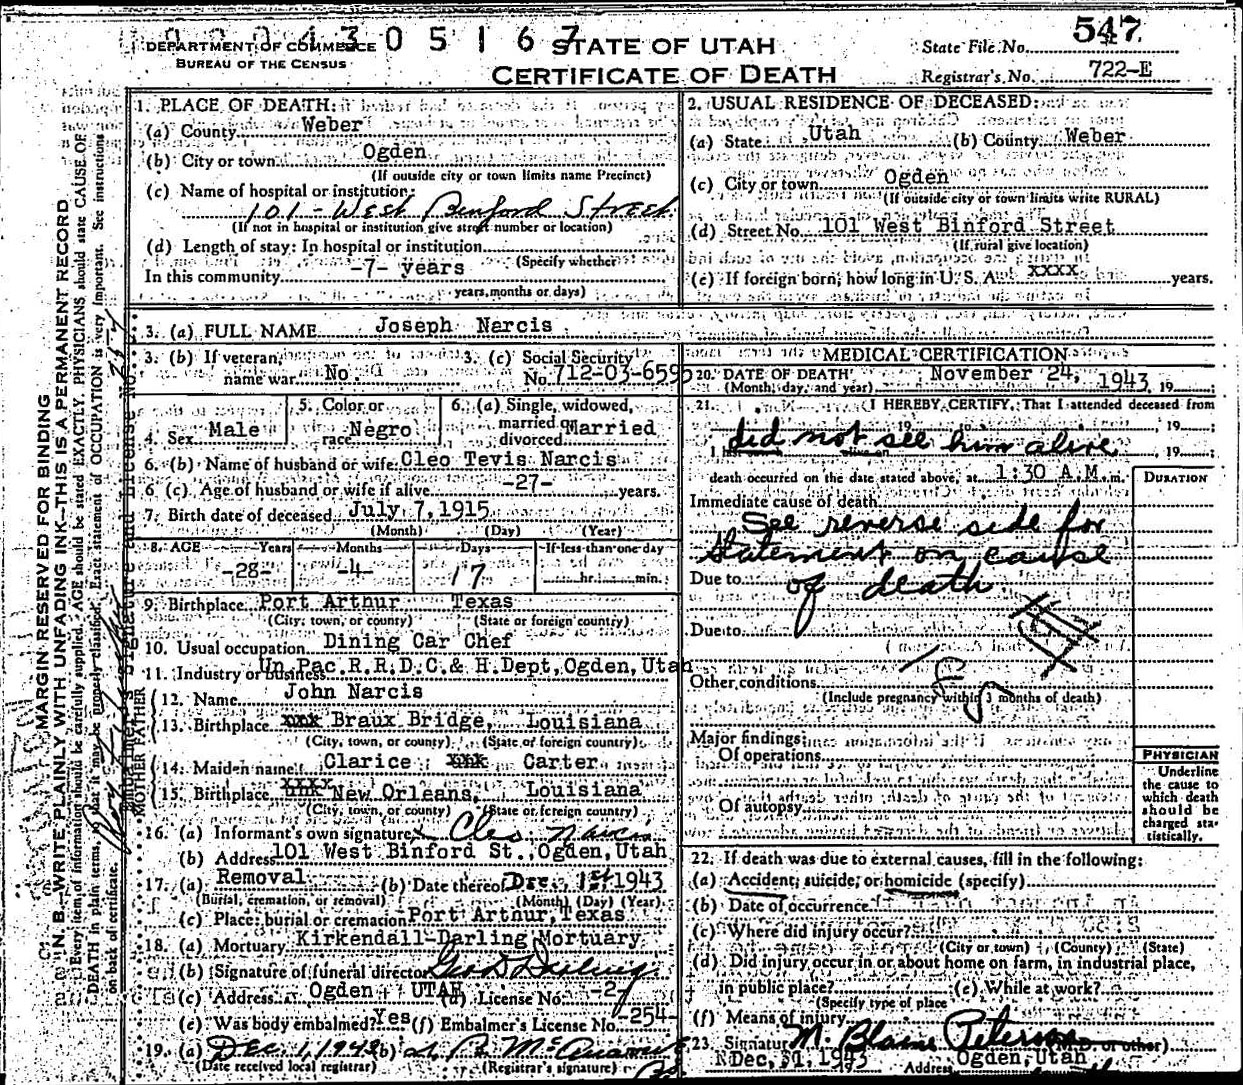 DEPARTMENT OF COMMERCE
BUREAU OF THE CENSUS
0 5 1 6 7
STATE OF UTAH
CERTIFICATE OF DEATH
State File No. 547
Registrar's No. 722-E
MARGIN RESERVED FOR BINDING
N. B.—WRITE PLAINLY WITH UNFADING INK—THIS IS A PERMANENT RECORD
Every item of information should be carefully supplied. AGE should be stated EXACTLY. PHYSICIANS should state CAUSE OF
DEATH in plain terms, so that it may be properly classified. Exact statement of OCCUPATION is very important. See instructions
on back of certificate.
1. PLACE OF DEATH:
(a) County Weber
(b) City or town Ogden
(If outside city or town limits name Precinct)
(c) Name of hospital or institution:
101 - West Binford Street
(If not in hospital or institution give street number or location)
(d) Length of stay: In hospital or institution
(Specify whether
In this community -7- years
years, months or days)
2. USUAL RESIDENCE OF DECEASED:
(a) State Utah (b) County Weber
(c) City or town Ogden
(If outside city or town limits write RURAL)
(d) Street No. 101 West Binford Street
(If rural give location)
(e) If foreign born, how long in U. S. A. xxxx years.
3. (a) FULL NAME Joseph Narcis
3. (b) If veteran, name war No.
3. (c) Social Security No. 712-03-6595
4. Sex Male
5. Color or race Negro
6. (a) Single, widowed, married, divorced Married
6. (b) Name of husband or wife Cleo Tevis Narcis
6. (c) Age of husband or wife if alive -27- years.
7. Birth date of deceased July 7, 1915
(Month) (Day) (Year)
8. AGE Years Months Days If less than one day
-28- -4- 17 hr. min.
9. Birthplace Port Arthur Texas
(City, town, or county) (State or foreign country)
10. Usual occupation Dining Car Chef
11. Industry or business Un.Pac.R.R.D.C.& H.Dept,Ogden,Utah
FATHER
12. Name John Narcis
13. Birthplace xxx Braux Bridge, Louisiana
(City, town, or county) (State or foreign country)
MOTHER
14. Maiden name Clarice xxx Carter
15. Birthplace xxxx New Orleans, Louisiana
(City, town, or county) (State or foreign country)
16. (a) Informant's own signature Cleo Narcis
(b) Address 101 West Binford St.,Ogden,Utah
17. (a) Removal (b) Date thereof Dec. 1st 1943
(Burial, cremation, or removal) (Month) (Day) (Year)
(c) Place: burial or cremation Port Arthur, Texas
18. (a) Mortuary Kirkendall-Darling Mortuary
(b) Signature of funeral director Geo D Darling
(c) Address Ogden UTAH (d) License No. -2-
(e) Was body embalmed? Yes (f) Embalmer's License No. -254-
19. (a) Dec 1, 1943 (b)
(Date received local registrar) (Registrar's signature)
MEDICAL CERTIFICATION
20. DATE OF DEATH November 24, 1943, 19
(Month, day, and year)
21. I HEREBY CERTIFY, That I attended deceased from
, 19 , 19 ;
did not see him alive , 19 ;
death occurred on the date stated above, at 1:30 A.M. m.
DURATION
Immediate cause of death
See reverse side for
statement on cause
Due to of death
Due to
Other conditions
(Include pregnancy within 3 months of death)
Major findings:
Of operations
Of autopsy
PHYSICIAN
Underline
the cause to
which death
should be
charged sta-
tistically.
22. If death was due to external causes, fill in the following:
(a) Accident, suicide, or homicide (specify)
(b) Date of occurrence
(c) Where did injury occur?
(City or town) (County) (State)
(d) Did injury occur in or about home on farm, in industrial place,
in public place? (e) While at work?
(Specify type of place
(f) Means of injury
23. Signature M. Blaine Peterson (M.D. or other)
Dec, 31, 1943 Address Ogden, Utah